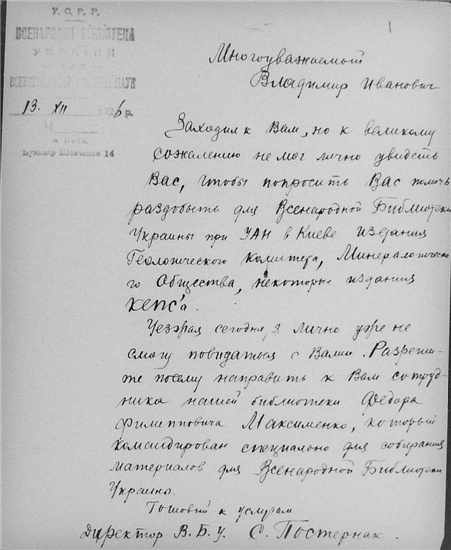 У.С.Р.Р.
ВСЕНАРОДНЯ БІБЛІОТЕКА
УКРАЇНИ
ВСЕУКРАЇНСЬКІЙ НАУК
13. XII 1926 р.
Бульвар Шевченка 14
1
Многоуважаемый
Владимир Иванович
Заходил к Вам, но к великому
сожалению не мог лично увидеть
Вас, чтобы попросить Вас помочь
раздобыть для Всенародной Библиотеки
Украины при УАН в Киеве издания
Геологического Комитета, Минералогическо-
го Общества, некоторые издания
КЕПС'а.
Уезжая сегодня, я лично уже не
смогу повидаться с Вами. Разреши-
те посему направить к Вам сотруд-
ника нашей библиотеки Федора
Филипповича Максименко, который
командирован специально для собирания
материалов для Всенародной Библиотеки
Украины.
Готовый к услугам
Директор В.Б.У. С. Постернак.